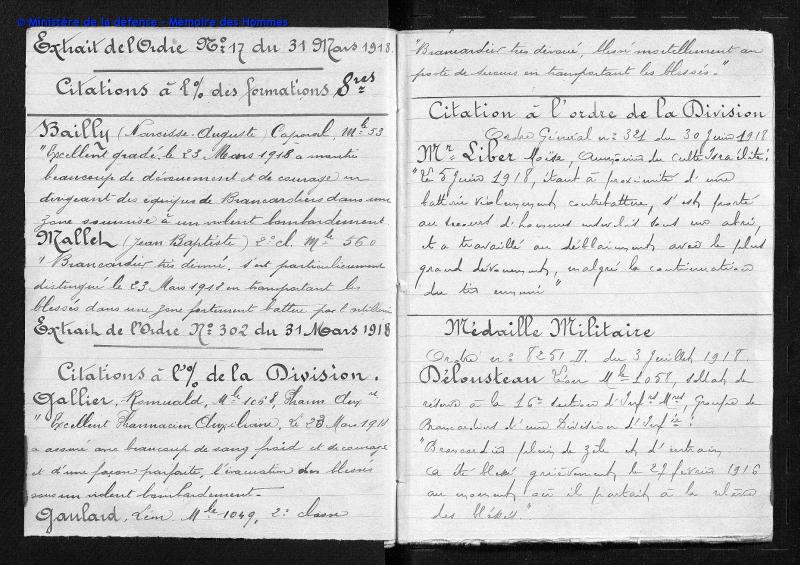 © Ministère de la défense - Mémoire des Hommes
Extrait de l'Ordre No 17 du 31 Mars 1918.
Citations à l'% des formations Sres
Bailly (Narcisse-Auguste) Caporal, Mle 53
"Excellent gradé, le 23 Mars 1918 a montré
beaucoup de dévouement et de courage en
dirigeant des équipes de Brancardiers dans une
zone soumise à un violent bombardement
Mallet (Jean Baptiste) 2e cl. Mle 560
"Brancardier très dévoué, s'est particulièrement
distingué le 23 Mars 1918 en transportant les
blessés dans une zone fortement battue par l'artillerie
Extrait de l'Ordre No 302 du 31 Mars 1918
Citations à l'% de la Division.
Gallier, Romuald, Mle 1068, Pharm Auxre
"Excellent Pharmacien Auxiliaire. Le 23 Mars 1918
a assuré avec beaucoup de sang froid et de courage
et d'une façon parfaite, l'évacuation des blessés
sous un violent bombardement.
Gaulard, Léon, Mle 1049, 2e classe
"Brancardier très dévoué, blessé mortellement au
poste de secours en transportant les blessés."
Citation à l'ordre de la Division
Ordre Général no 321 du 30 Juin 1918
Mr Liber Moïse, Aumônier du culte Israélite:
"Le 5 Juin 1918, étant à proximité d'une
batterie violemment contrebattue, s'est porté
au secours d'hommes ensevelis sous un abri,
et a travaillé au déblaiement avec le plus
grand dévouement, malgré la continuation
du tir ennemi"
Médaille Militaire
Ordre no 8251 D, du 3 Juillet 1918.
Délousteau Mle 1051, soldat de
réserve à la 16e section d'Infrs Mres, Groupe de
Brancardiers d'une Division d'Infie:
"Brancardier plein de zèle et d'entrain
a été blessé grièvement le 27 février 1916
au moment où il partait à la relève
des blessés".